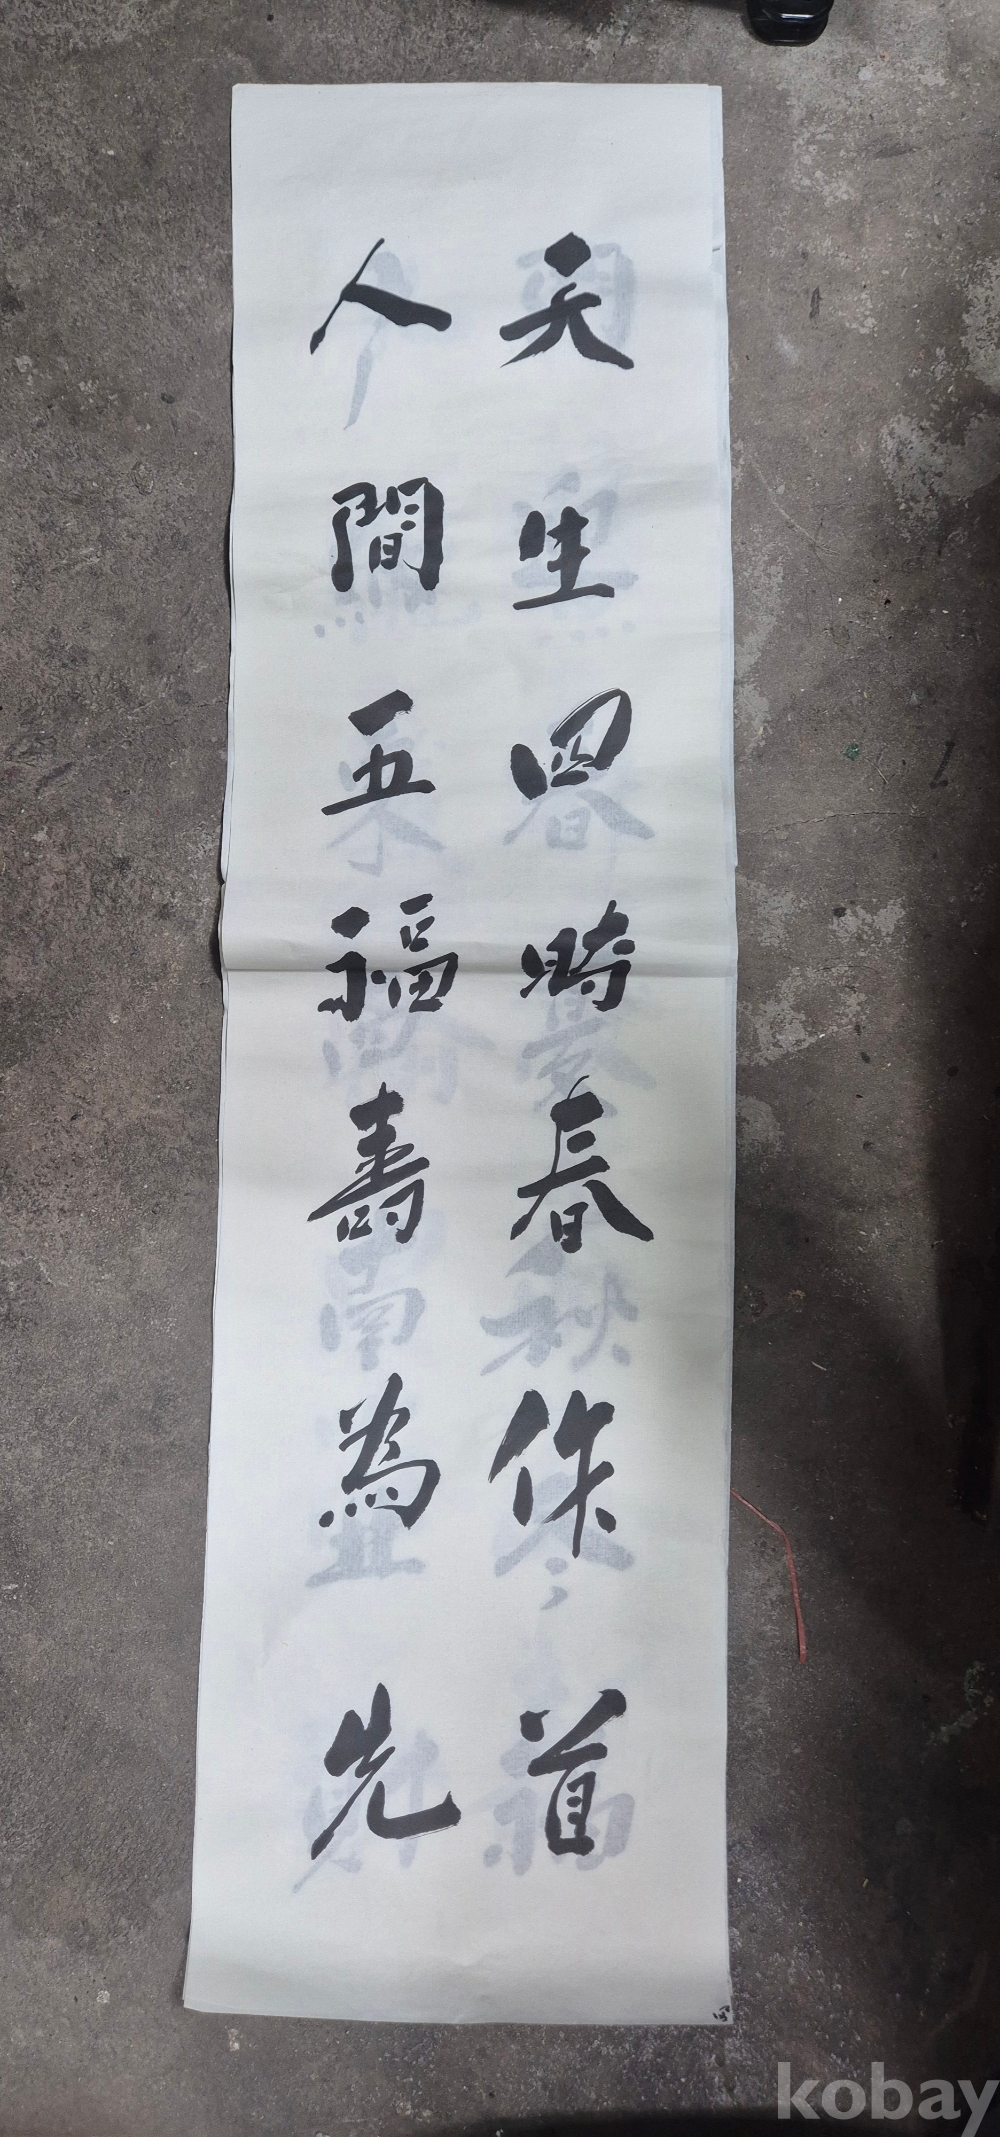 天生四時春作首
人間五福壽為先
kobay